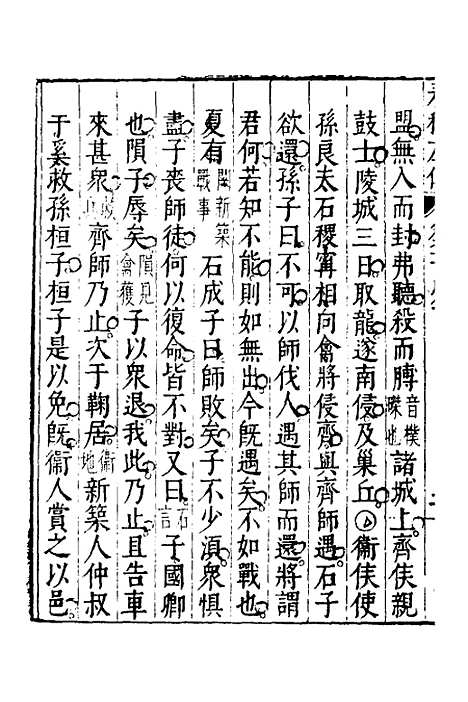 盟無入而封弗聽殺而膊音樸磔也諸城上齊侯親
鼓士陵城三日取龍遂南侵及巢丘衞侯使
孫良夫石稷甯相向禽將侵齊與齊師遇石子
欲還孫子曰不可以師伐人遇其師而還將謂
君何若知不能則如無出今旣遇矣不如戰也
夏有闕新築戰事石成子曰師敗矣子不少湏衆懼
盡子喪師徒何以復命皆不對又曰子國卿
也隕子辱矣隕見禽獲子以衆退我此乃止且告車
來甚衆齊師乃止次于鞫居衞地新築人仲叔
于奚救孫桓子桓子是以免旣衞人賞之以邑